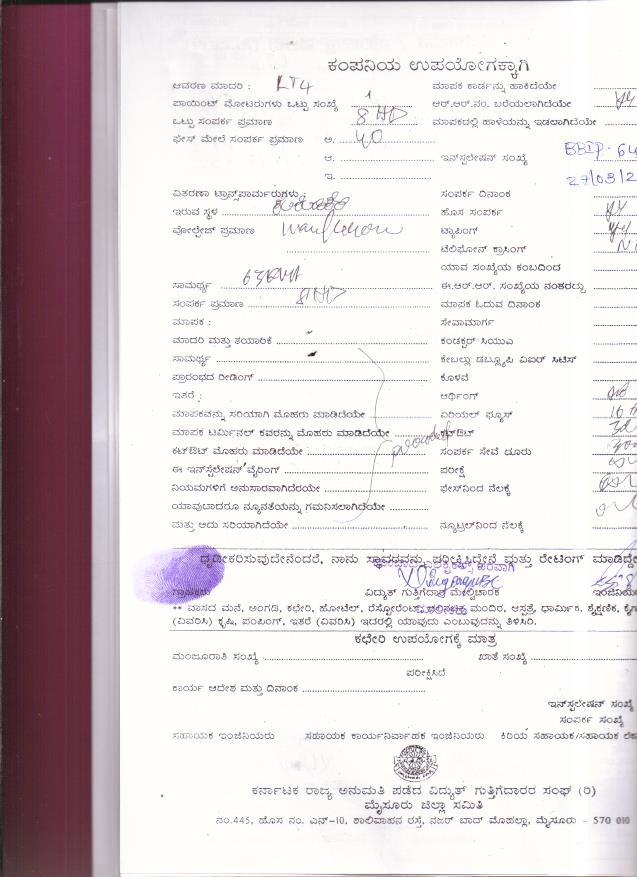 ಕಂಪನಿಯ ಉಪಯೋಗಕ್ಕಾಗಿ
ಆವರಣ ಮಾದರಿ : LT4 ಮಾಪಕ ಕಾರ್ಡನ್ನು ಹಾಕಿದೆಯೇ
ಪಾಯಿಂಟ್ ಮೋಟರುಗಳು ಒಟ್ಟು ಸಂಖ್ಯೆ 1 ಆರ್.ಆರ್.ನಂ. ಬರೆಯಲಾಗಿದೆಯೇ
ಒಟ್ಟು ಸಂಪರ್ಕ ಪ್ರಮಾಣ 8 HP ಮಾಪಕದಲ್ಲಿ ಹಾಳೆಯನ್ನು ಇಡಲಾಗಿದೆಯೇ
ಫೇಸ್ ಮೇಲೆ ಸಂಪರ್ಕ ಪ್ರಮಾಣ ಅ. 40
ಆ. ಇನ್‌ಸ್ಟಲೇಷನ್ ಸಂಖ್ಯೆ BBIP-64
ಇ. 27/03/2
ವಿತರಣಾ ಟ್ರಾನ್ಸ್‌ಪಾರ್ಮರುಗಳು : ಸಂಪರ್ಕ ದಿನಾಂಕ
ಇರುವ ಸ್ಥಳ ಹೊಸ ಸಂಪರ್ಕ
ವೋಲ್ಟೇಜ್ ಪ್ರಮಾಣ ಟ್ಯಾಪಿಂಗ್
ಟೆಲಿಫೋನ್ ಕ್ರಾಸಿಂಗ್
ಯಾವ ಸಂಖ್ಯೆಯ ಕಂಬದಿಂದ
ಸಾಮರ್ಥ್ಯ 63KVA ಈ.ಆರ್.ಆರ್. ಸಂಖ್ಯೆಯ ನಂತರದ್ದು
ಸಂಪರ್ಕ ಪ್ರಮಾಣ 8 HP ಮಾಪಕ ಓದುವ ದಿನಾಂಕ
ಮಾಪಕ : ಸೇವಾಮಾರ್ಗ
ಮಾದರಿ ಮತ್ತು ತಯಾರಿಕೆ ಕಂಡಕ್ಟರ್ ಸಿಯುಎ
ಸಾಮರ್ಥ್ಯ ಕೇಬಲ್ಲು ಡಬ್ಲ್ಯೂಪಿ ವಿಐರ್ ಸಿಟಿಸ್
ಪ್ರಾರಂಭದ ರೀಡಿಂಗ್ ಕೊಳವೆ
ಇತರೆ : ಆರ್ಥಿಂಗ್
ಮಾಪಕವನ್ನು ಸರಿಯಾಗಿ ಮೊಹರು ಮಾಡಿದೆಯೇ ಏರಿಯಲ್ ಫ್ಯೂಸ್
ಮಾಪಕ ಟರ್ಮಿನಲ್ ಕವರನ್ನು ಮೊಹರು ಮಾಡಿದೆಯೇ ಕಟ್‌ಔಟ್
ಕಟ್‌ಔಟ್ ಮೊಹರು ಮಾಡಿದೆಯೇ ಸಂಪರ್ಕ ಸೇವೆ ದೂರು
ಈ ಇನ್‌ಸ್ಟಲೇಷನ್ ವೈರಿಂಗ್ ಪರೀಕ್ಷೆ
ನಿಯಮಗಳಿಗೆ ಅನುಸಾರವಾಗಿದೆರೆಯೇ ಫೇಸ್‌ನಿಂದ ನೆಲಕ್ಕೆ
ಯಾವುದಾದರೂ ನ್ಯೂನತೆಯನ್ನು ಗಮನಿಸಲಾಗಿದೆಯೇ
ಮತ್ತು ಅದು ಸರಿಯಾಗಿದೆಯೇ ನ್ಯೂಟ್ರಲ್‌ನಿಂದ ನೆಲಕ್ಕೆ
ದೃಢೀಕರಿಸುವುದೇನೆಂದರೆ, ನಾನು ಸ್ಥಾವರವನ್ನು ಪರೀಕ್ಷಿಸಿದ್ದೇನೆ ಮತ್ತು ರೇಟಿಂಗ್ ಮಾಡಿದ್ದೇ
ಗ್ರಾಹಕರು ವಿದ್ಯುತ್ ಗುತ್ತಿಗೆದಾರ ಮೇಲ್ವಿಚಾರಕ ಇಂಜಿನಿಯ
** ವಾಸದ ಮನೆ, ಅಂಗಡಿ, ಕಛೇರಿ, ಹೋಟೆಲ್, ರೆಸ್ಟೋರೆಂಟ್, ಮಂದಿರ, ಆಸ್ಪತ್ರೆ, ಧಾರ್ಮಿಕ, ಶೈಕ್ಷಣಿಕ, ಕೈಗ
(ವಿವರಿಸಿ) ಕೃಷಿ, ಪಂಪಿಂಗ್, ಇತರೆ (ವಿವರಿಸಿ) ಇದರಲ್ಲಿ ಯಾವುದು ಎಂಬುವುದನ್ನು ತಿಳಿಸಿರಿ.
ಕಛೇರಿ ಉಪಯೋಗಕ್ಕೆ ಮಾತ್ರ
ಮಂಜೂರಾತಿ ಸಂಖ್ಯೆ ಖಾತೆ ಸಂಖ್ಯೆ
ಪರೀಕ್ಷಿಸಿದೆ
ಕಾರ್ಯ ಆದೇಶ ಮತ್ತು ದಿನಾಂಕ
ಇನ್‌ಸ್ಟಲೇಷನ್ ಸಂಖ್ಯೆ
ಸಂಪರ್ಕ ಸಂಖ್ಯೆ
ಸಹಾಯಕ ಇಂಜಿನಿಯರು ಸಹಾಯಕ ಕಾರ್ಯನಿರ್ವಾಹಕ ಇಂಜಿನಿಯರು ಕಿರಿಯ ಸಹಾಯಕ/ಸಹಾಯಕ ಲೆಕ
ಕರ್ನಾಟಕ ರಾಜ್ಯ ಅನುಮತಿ ಪಡೆದ ವಿದ್ಯುತ್ ಗುತ್ತಿಗೆದಾರರ ಸಂಘ (ರಿ)
ಮೈಸೂರು ಜಿಲ್ಲಾ ಸಮಿತಿ
ನಂ.445, ಹೊಸ ನಂ. ಎನ್-10, ಶಾಲಿವಾಹನ ರಸ್ತೆ, ನಜರ್ ಬಾದ್ ಮೊಹಲ್ಲಾ, ಮೈಸೂರು - 570 010